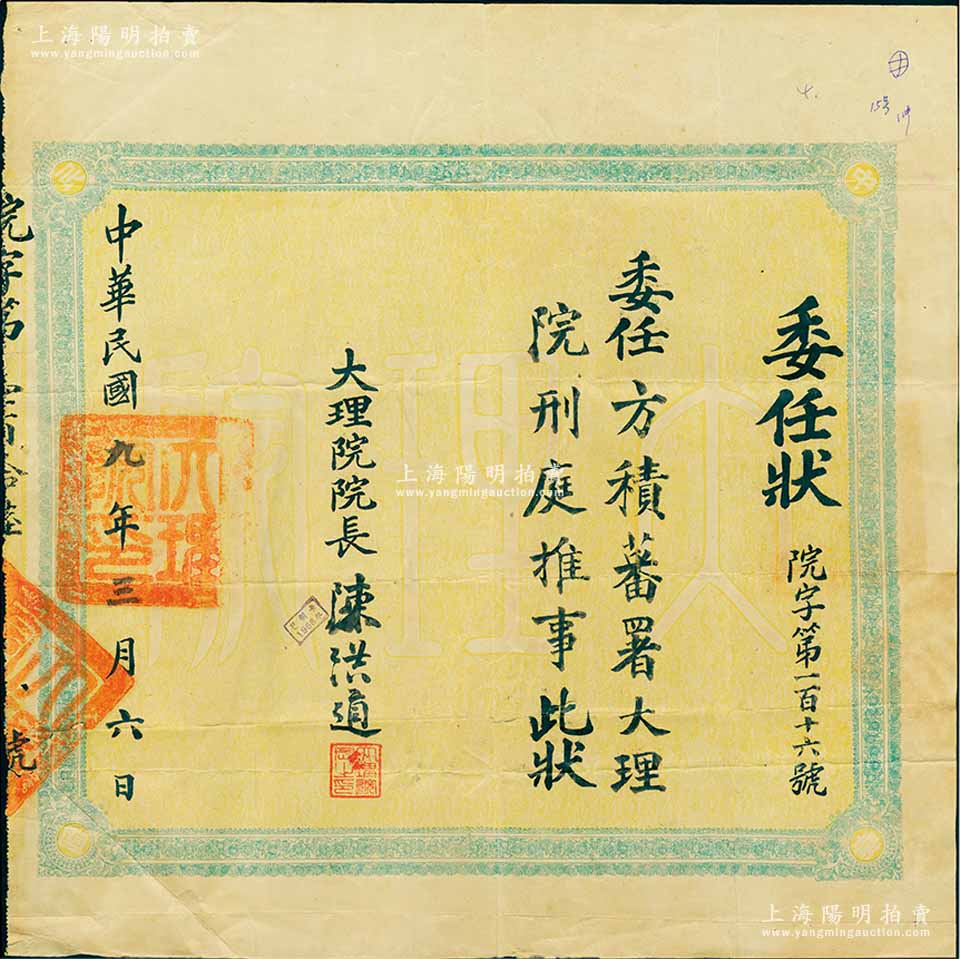 上海陽明拍賣
www.yangmingauction.com
委任狀
院字第一百十六號
委任方積蕃署大理
院刑庭推事此狀
大理院院長 陳洪道
中華民國九年三月六日
院字第
號
大理院印
大理院
上海陽明拍賣
www.yangmingauction.com
上海陽明拍賣
www.yangmingauction.com